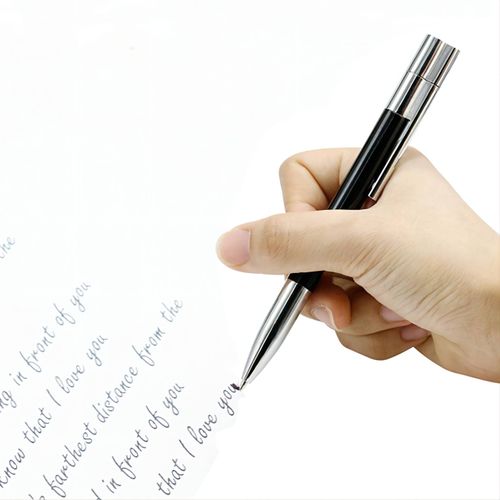 the
ng in front of you
know that I love you
farthest distance from the
d in front of you
that I love you